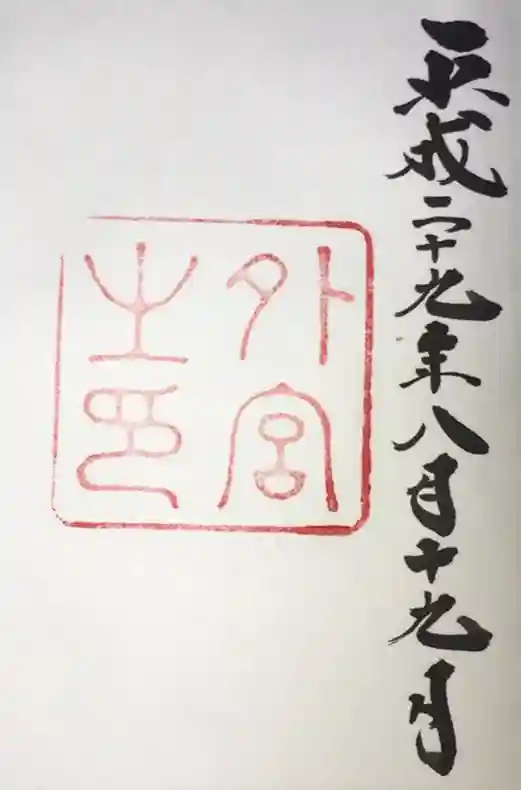 平成二十九年八月十九日
外宮
之印